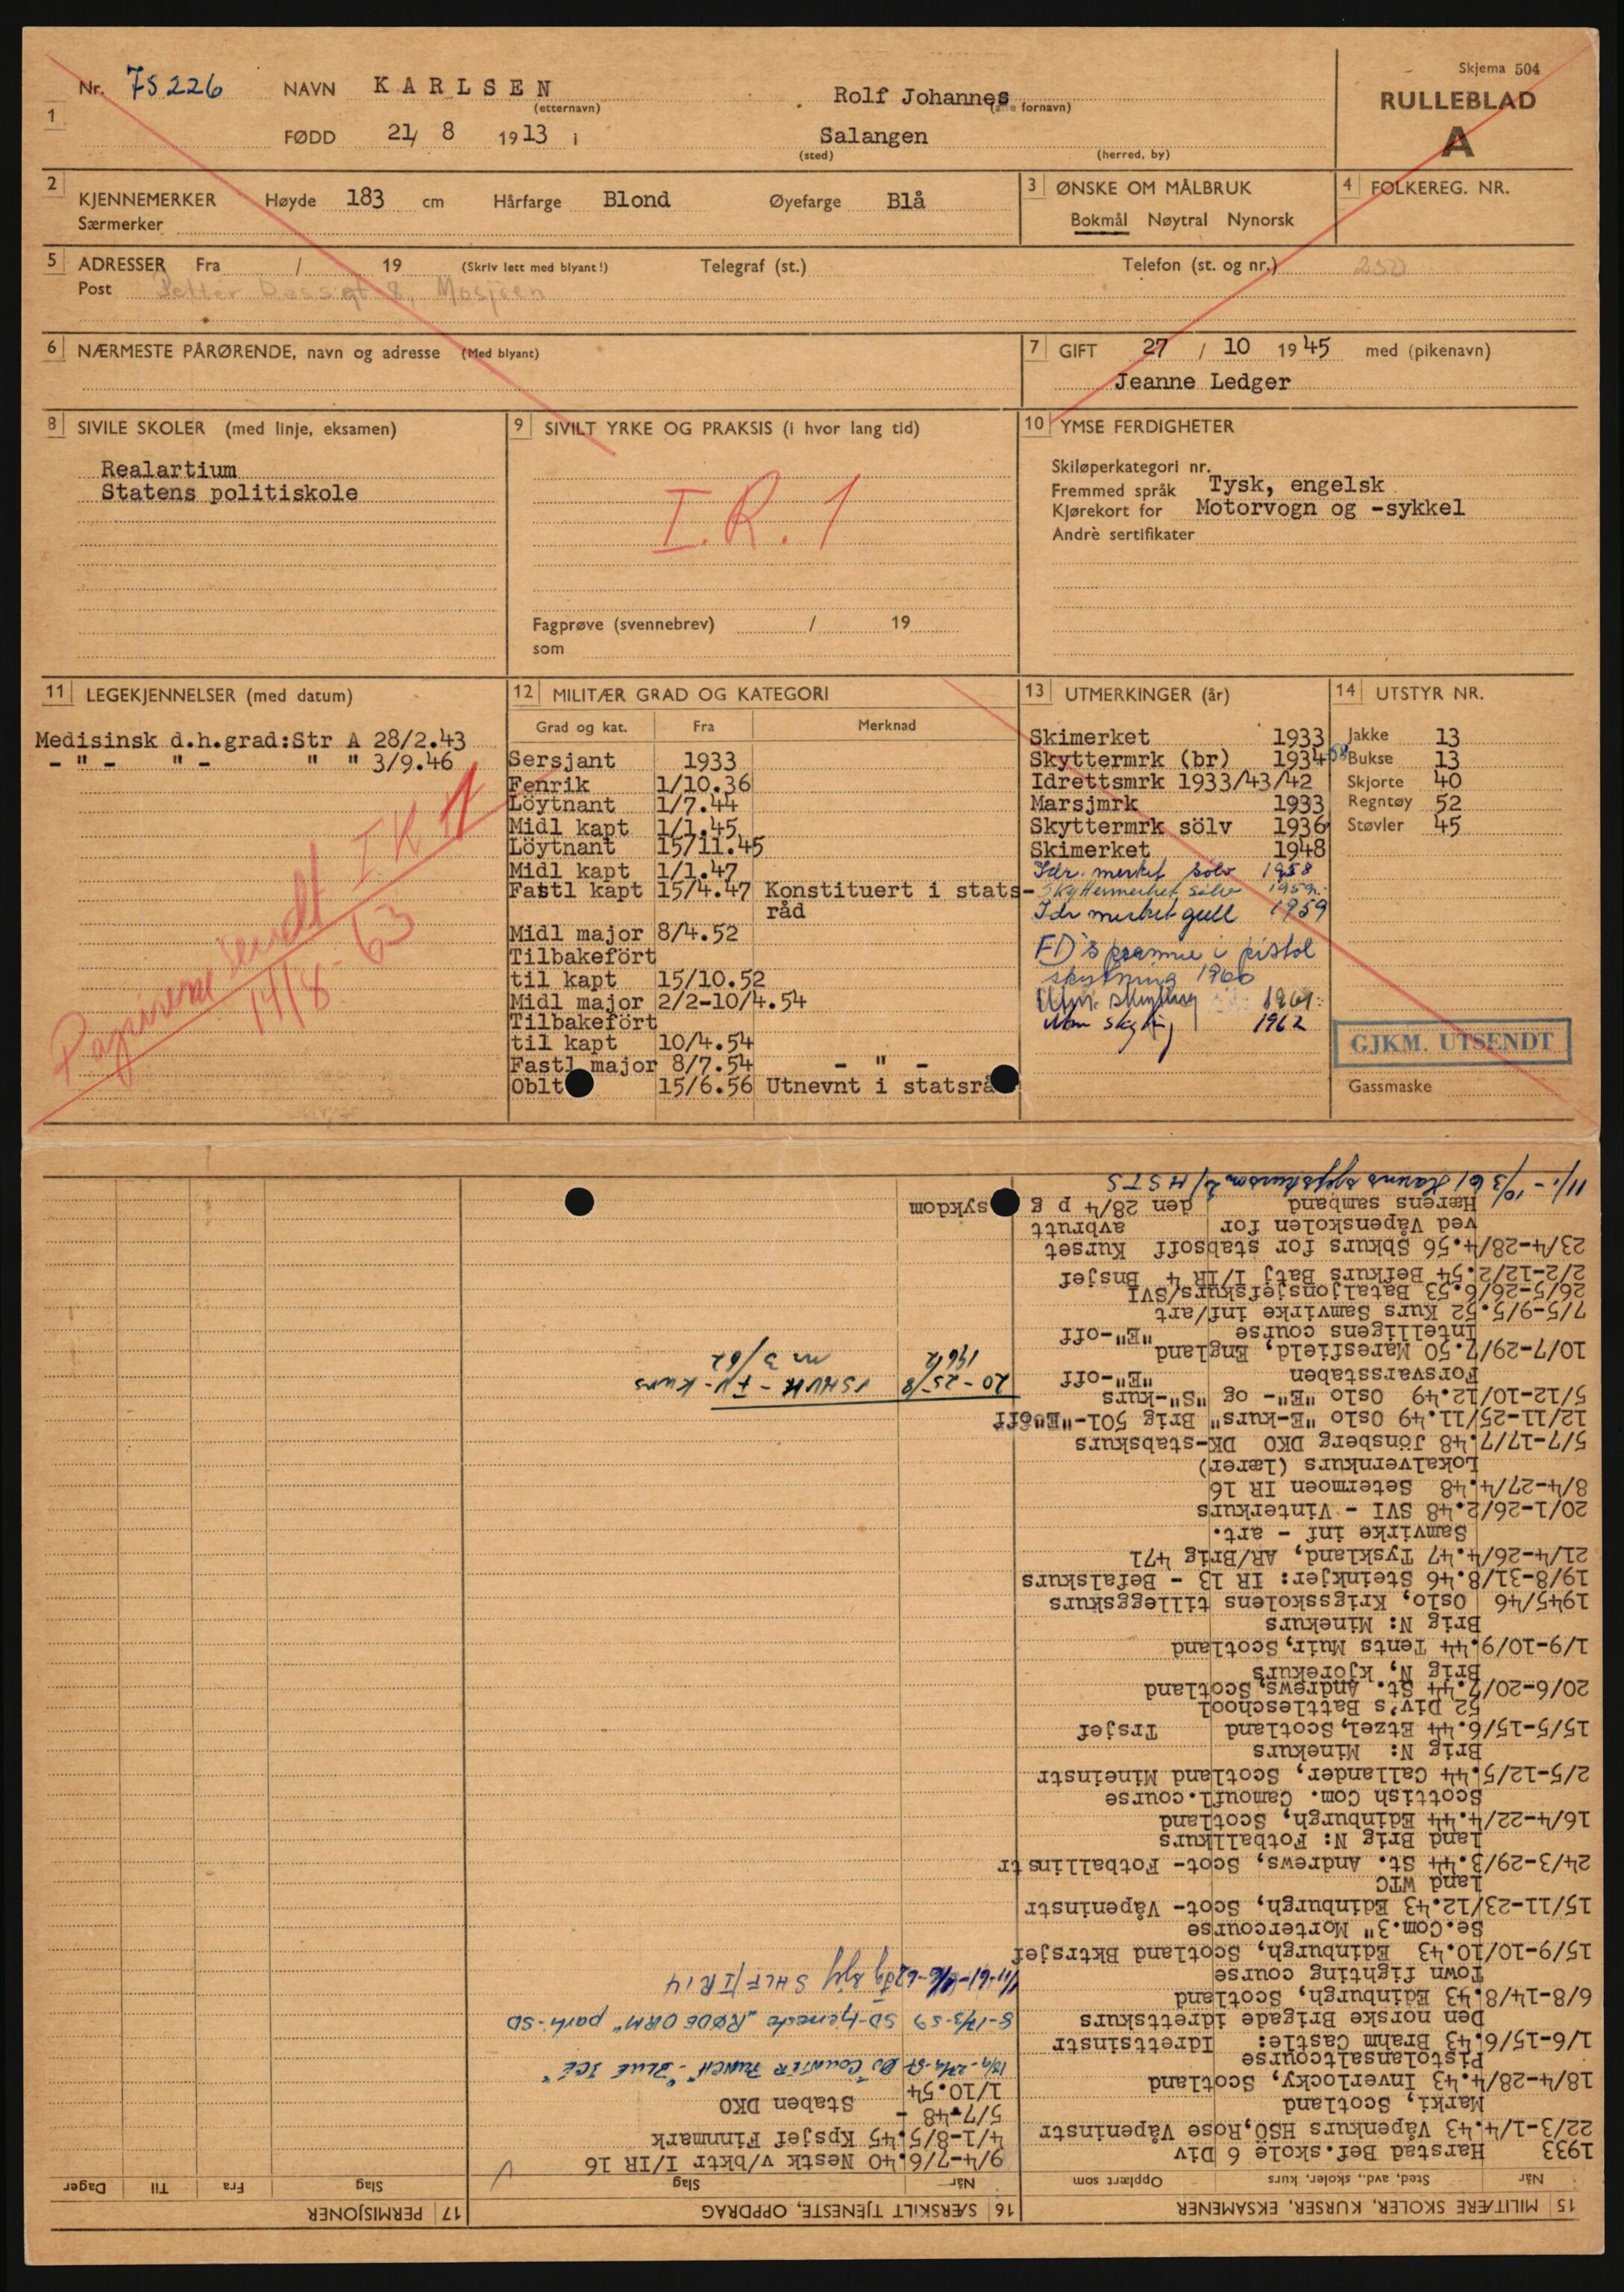 Skjema 504
RULLEBLAD
A
1
Nr. 75226 NAVN KARLSEN Rolf Johannes
(etternavn) (alle fornavn)
FØDD 21/ 8 1913 i Salangen
(sted) (herred, by)
2 KJENNEMERKER Høyde 183 cm Hårfarge Blond Øyefarge Blå
Særmerker
3 ØNSKE OM MÅLBRUK
Bokmål Nøytral Nynorsk
4 FOLKEREG. NR.
5 ADRESSER Fra / 19 (Skriv lett med blyant!) Telegraf (st.) Telefon (st. og nr.) 250
Post Petter Dassgt 8, Mosjøen
6 NÆRMESTE PÅRØRENDE, navn og adresse (Med blyant)
7 GIFT 27 / 10 1945 med (pikenavn)
Jeanne Ledger
8 SIVILE SKOLER (med linje, eksamen)
Realartium
Statens politiskole
9 SIVILT YRKE OG PRAKSIS (i hvor lang tid)
I.R. 1
Fagprøve (svennebrev) / 19
som
10 YMSE FERDIGHETER
Skiløperkategori nr.
Fremmed språk Tysk, engelsk
Kjørekort for Motorvogn og -sykkel
Andrè sertifikater
11 LEGEKJENNELSER (med datum)
Medisinsk d.h.grad:Str A 28/2.43
- " - " - " " 3/9.46
Papirene sendt I.R 1
14/8-63
12 MILITÆR GRAD OG KATEGORI
Grad og kat. Fra Merknad
Sersjant 1933
Fenrik 1/10.36
Löytnant 1/7.44
Midl kapt 1/1.45
Löytnant 15/11.45
Midl kapt 1/1.47
Fastl kapt 15/4.47 Konstituert i stats-
råd
Midl major 8/4.52
Tilbakefört
til kapt 15/10.52
Midl major 2/2-10/4.54
Tilbakefört
til kapt 10/4.54
Fastl major 8/7.54 - " -
Oblt 15/6.56 Utnevnt i statsrå
13 UTMERKINGER (år)
Skimerket 1933
Skyttermrk (br) 1934
Idrettsmrk 1933/43/42
Marsjmrk 1933
Skyttermrk sölv 1936
Skimerket 1948
Idr. merket sölv 1958
Skyttermerket sølv 1959
Idr merket gull 1959
FD's premie i pistol
skytning 1960
Min. skyting 1961
skyting 1962
14 UTSTYR NR.
Jakke 13
Bukse 13
Skjorte 40
Regntøy 52
Støvler 45
GJKM. UTSENDT
Gassmaske
15 MILITÆRE SKOLER, KURSER, EKSAMENER
Når Sted, avd., skoler, kurs Opplært som
1933 Harstad Bef.skole 6 Div
22/3-1/4.43 Våpenkurs HSÖ,Rose Våpeninstr
Marki, Scotland
18/4-28/4.43 Inverlocky, Scotland
Pistolansaltcourse
1/6-15/6.43 Brahm Castle: Idrettsinstr
Den norske Brigade idrettskurs
6/8-14/8.43 Edinburgh, Scotland
Town fighting course
15/9-10/10.43 Edinburgh, Scotland Bktrsjef
Se.Com.3" Mortercourse
15/11-23/12.43 Edinburgh, Scot- Våpeninstr
land WTC
24/3-29/3.44 St. Andrews, Scot- Fotballinstr
land Brig N: Fotballkurs
16/4-22/4.44 Edinburgh, Scotland
Scottish Com. Camoufl.course
2/5-12/5.44 Callander, Scotland Mineinstr
Brig N: Minekurs
15/5-15/6.44 Etzel,Scotland Trsjef
52 Div's Battleschool
20/6-20/7.44 St. Andrews,Scotland
Brig N, kjörekurs
1/9-10/9.44 Tents Muir,Scotland
Brig N: Minekurs
1945/46 Oslo, Krigsskolens tilleggskurs
19/8-31/8.46 Steinkjer: IR 13 - Befalskurs
21/4-26/4.47 Tyskland, AR/Brig 471
Samvirke inf - art.
20/1-26/2.48 SVI - Vinterkurs
8/4-27/4.48 Setermoen IR 16
Lokalvernkurs (lærer)
5/7-17/7.48 Jönsberg DKO DK-stabskurs
12/11-25/11.49 Oslo "E-kurs" Brig 501-"E"off
5/12-10/12.49 Oslo "E"- og "S"-kurs
Forsvarsstaben "E"-off
10/7-29/7.50 Maresfield, England
Intelligens course "E"-off
7/5-9/5.52 Kurs Samvirke inf/art
26/5-26/6.53 Bataljonsjefskurs/SVI
2/2-12/2.54 Befkurs Batj I/IR 4 Bnsjef
23/4-28/4.56 Sbkurs for stabsoff Kurset
ved Våpenskolen for avbrutt
Hærens samband den 28/4 p g sykdom
11/1-10/3 61 Hærens sjefskursom/HSTS
16 SÆRSKILT TJENESTE, OPPDRAG
Når Slag
9/4-7/6.40 Nestk v/bktr I/IR 16
4/1-8/5.45 Kpsjef Finnmark
5/7-48 -
1/10.54 Staben DKO
18/9-27/9-57 ØJ "COUNTER PUNCH" "BLUE ICE"
8-17/3-59 SD-tjeneste "RØDE ORM" parti-SD
sjef SHLF/IR14
20-25/8 1962 VSHVK - FN-kurs
nr 3/62
17 PERMISJONER
Slag Fra Til Dager